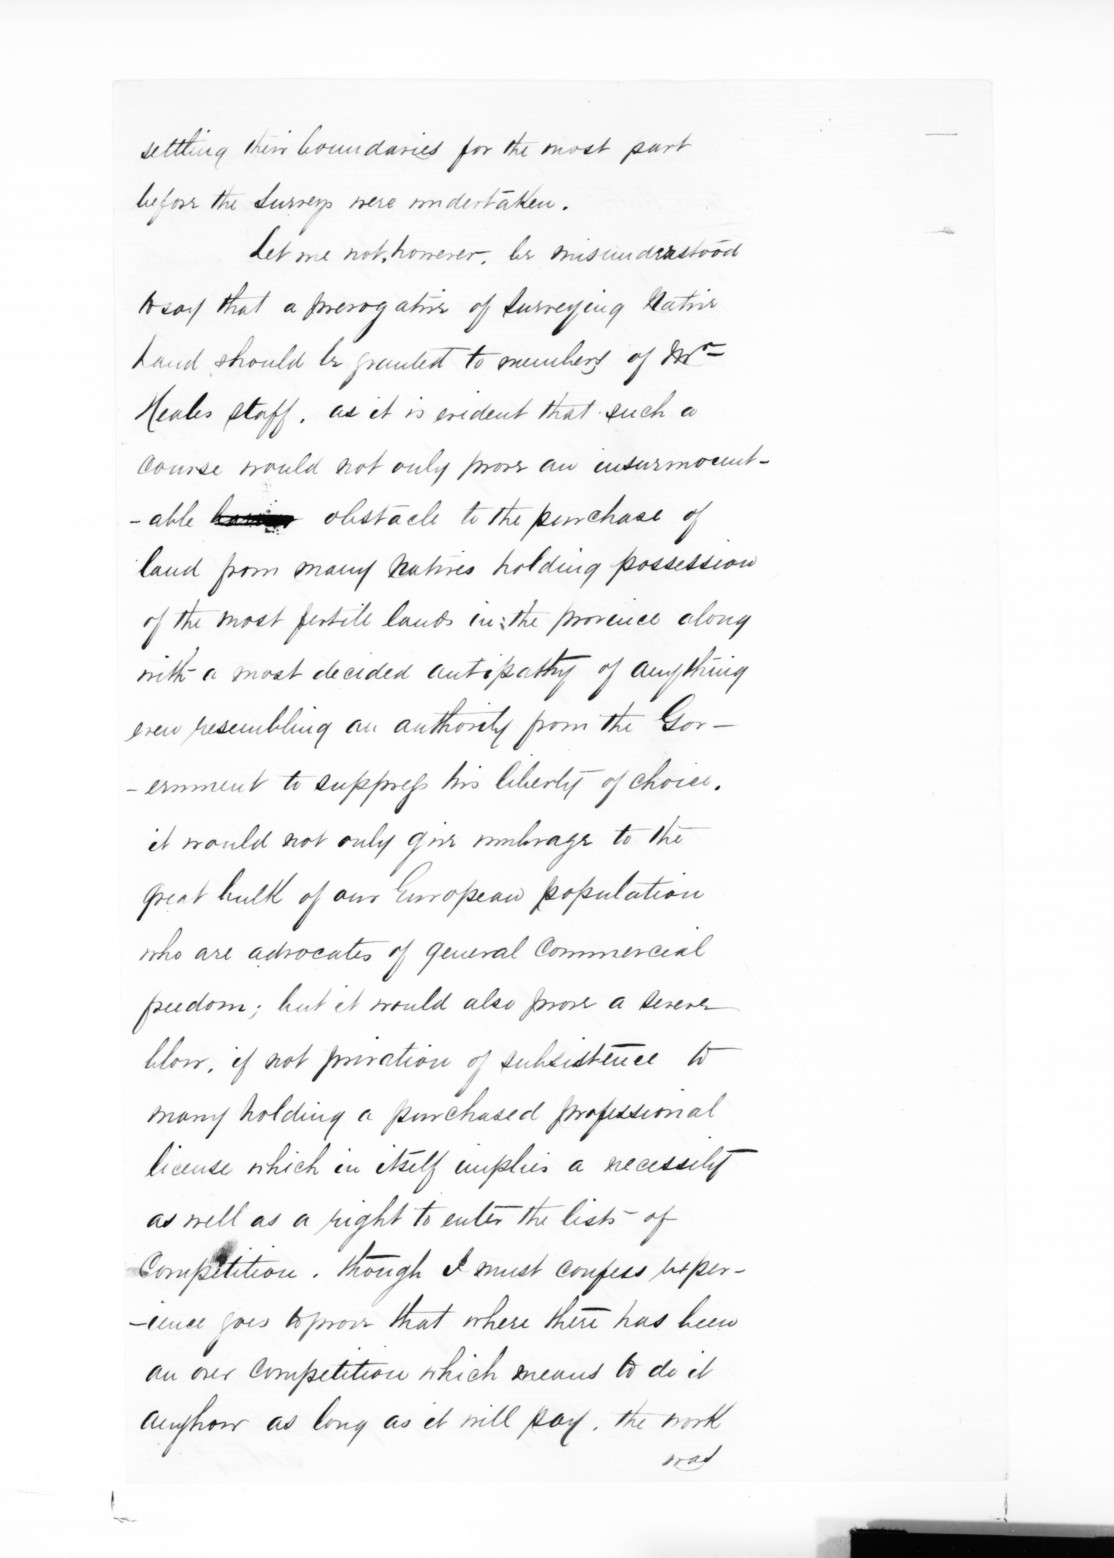 settling their boundaries for the most part
before the Surveys were undertaken.
Let me not, however, be misunderstood
to say that a prerogative of Surveying Native
Land should be granted to members of Mr
Heales staff, as it is evident that such a
course would not only prove an insurmount-
-able obstacle to the purchase of
land from many Natives holding possession
of the most fertile lands in the province along
with a most decided antipathy of anything
even resembling an authority from the Gov-
-ernment to suppress his liberty of choice.
it would not only give umbrage to the
great bulk of our European population
who are advocates of general Commercial
freedom; but it would also prove a severe
blow, if not privation of subsistence to
many holding a purchased professional
license which in itself implies a necessity
as well as a right to enter the lists of
Competition. though I must confess exper-
-ience goes to prove that where there has been
an over Competition which means to do it
anyhow as long as it will pay, the work
was